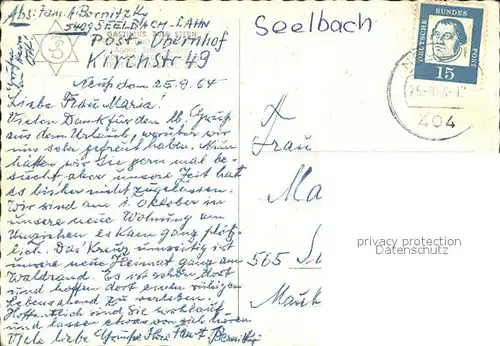 Abs: Fam. A. Bornitzky
5409 SEELBACH-LAHN
Post-Obernhof
Kirchstr 49
Seelbach
DEUTSCHE BUNDESPOST
15
404
Neuß dem 25.9.64
Liebe Frau Maria!
Vielen Dank für den lb. Gruß
aus dem Urlaub, worüber wir
uns sehr gefreut haben. Nun
hätten wir Sie gern mal be-
sucht aber unsere Zeit hatt
es bisher nicht zugelassen.
Wir sind am 1. Oktober in
unsere neue Wohnung am
Umziehen es kam ganz plötz-
lich. Das Kreuz umseitig ist
unsere neue Heimat ganz am
Waldrand. Es ist schön dort
und hoffen dort einen ruhigen
Lebensabend zu verleben.
Hoffentlich sind Sie wohlauf
und lassen etwas von sich hören
Viele liebe Grüße Ihre Fam. Bornitzky
Frau
Ma
565 S
Maub
protection watermark
(www.oldthing.de)